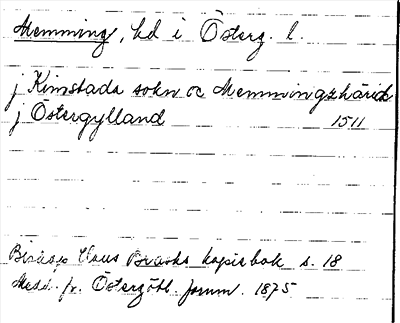 Memming, hd i Österg. l.
j Kimstada sokn oc Memmingxhärich
j Östergylland 1511
Biskop Hans Brasks kopiebok s. 18
Medd. fr. Östergötl. fornm. 1875